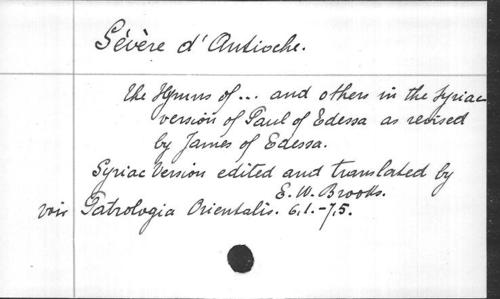 Sévère d'Antioche.
the Hymns of ... and others in the Syriac
version of Paul of Edessa as revised
by James of Edessa.
Syriac Version edited and translated by
E. W. Brooks.
voir Patrologia Orientalis. 6,1.-7,5.